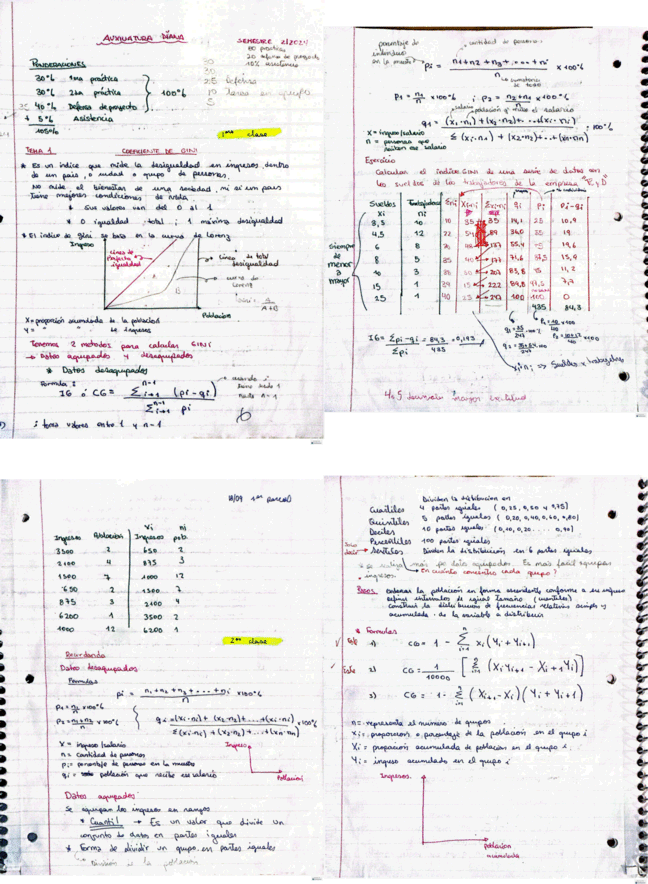 AUXILIATURA DIANA
SEMESTRE 2/2024
PONDERACIONES
30% 1ra práctica
30% 2da práctica
40% Defensa de proyecto
5% Asistencia
105%
100%
1ra clase
TEMA 1 COEFICIENTE DE GINI
* Es un indice que mide la desigualdad en ingresos, dentro
de un pais, ciudad o grupo de personas.
No mide el bienestar de una sociedad, ni si un pais
tiene mejores condiciones de vida.
* Sus valores van del 0 al 1
* 0 igualdad total ; 1 maxima desigualdad
* El indice de Gini se basa en la curva de Lorenz
Ingreso
Linea de
perfecta
igualdad
Linea de total
desigualdad
curva de
Lorenz
B
A
A+B
Poblacion
X = proporción acumulada de la poblacion
Y = " " " ingresos
Tenemos 2 metodos para calcular GINI
→ Datos agrupados y desagrupados
* Datos desagrupados
Formula:
IG ó CG = Σ i=1 n-1 (pi - qi) / Σ i=1 n-1 pi
i toma valores entre 1 y n-1
porcentaje de
individuos
en la muestra
cantidad de personas
Pi = n1 + n2 + n3 + ... + ni / n x 100%
la sumatoria
de todo
P1 = n1/n x 100% ; P2 = n2+n1/n x 100%
q1 = (x1·n1) + (x2·n2) + ... + (xi·ni) / Σ (x1·n1) + (x2·n2) + ... + (xn·nn) x 100%
X = ingreso/salario
n = personas que
reciben ese salario
Ejercicio
Calcular el indice Gini de una serie de datos con
los sueldos de los trabajadores de la empresa "R y D"
Sueldos Trabajadores Σni Xi·ni Σxi·ni qi Pi Pi-qi
Xi ni
3,5 10 10 35 35 14,1 25 10,9
4,5 12 22 54 89 36,0 55 19
6 8 30 48 137 55,4 75 19,6
8 5 35 40 177 71,6 87,5 15,9
10 3 38 30 207 83,8 95 11,2
15 1 39 15 222 89,8 97,5 7,7
25 1 40 25 247 100 100 0
435 84,3
Siempre
de
menor
a
mayor
IG = Σpi-qi / Σpi = 84,3 / 435 = 0,193
xi·ni ⇒ Sueldos x trabajadores
13/09 1er parcial
Ingresos Poblacion
3500 2
2100 4
1500 7
650 2
875 3
6200 1
1000 12
Yi ni
Ingresos pob.
650 2
875 3
1000 12
1500 7
2100 4
3500 2
6200 1
2da clase
Recordando
Datos desagrupados
Formulas
pi = n1 + n2 + n3 + ... + ni / n x 100%
P1 = n1/n x 100%
P2 = n1+n2/n x 100%
qi = (x1·n1) + (x2·n2) + ... + (xi·ni) / Σ(x1·n1) + (x2·n2) + ... + (xn·nn) x 100%
X = ingreso/salario
n = cantidad de personas
pi = porcentaje de personas en la muestra
qi = población que recibe ese salario
Ingreso
Poblacion
Datos agrupados
Se agrupan los ingresos en rangos
* Cuantil → Es un valor que divide un
conjunto de datos en partes iguales
* Forma de dividir un grupo en partes iguales
Dividen la distribucion en
Cuartiles 4 partes iguales (0,25, 0,50 y 0,75)
Quintiles 5 partes iguales (0,20, 0,40, 0,60, 0,80)
Deciles 10 partes iguales (0,10, 0,20 .... 0,90)
Percentiles 100 partes iguales
→ Sextiles Dividen la distribución en 6 partes iguales
→ En cuánto concentra cada grupo?
ingresos
Pasos: ordenar la poblacion en forma ascendente conforme a su ingreso
definir intervalos de igual tamaño (cuantiles)
Construir la distribucion de frecuencias relativas simple y
acumulada de la variable a distribuir
* Formulas
1) CG = 1 - Σ i=1 n xi (Yi + Yi-1)
Este 2) CG = 1/10000 [Σ i=1 n (Xi Yi+1 - Xi+1 Yi)]
3) CG = 1 - Σ (Xi+1 - Xi)(Yi + Yi+1)
n = representa el numero de grupos
xi = proporcion o porcentaje de la poblacion en el grupo i
Xi = proporcion acumulada de poblacion en el grupo i
Yi = ingreso acumulado en el grupo i
Ingresos
poblacion
acumulada